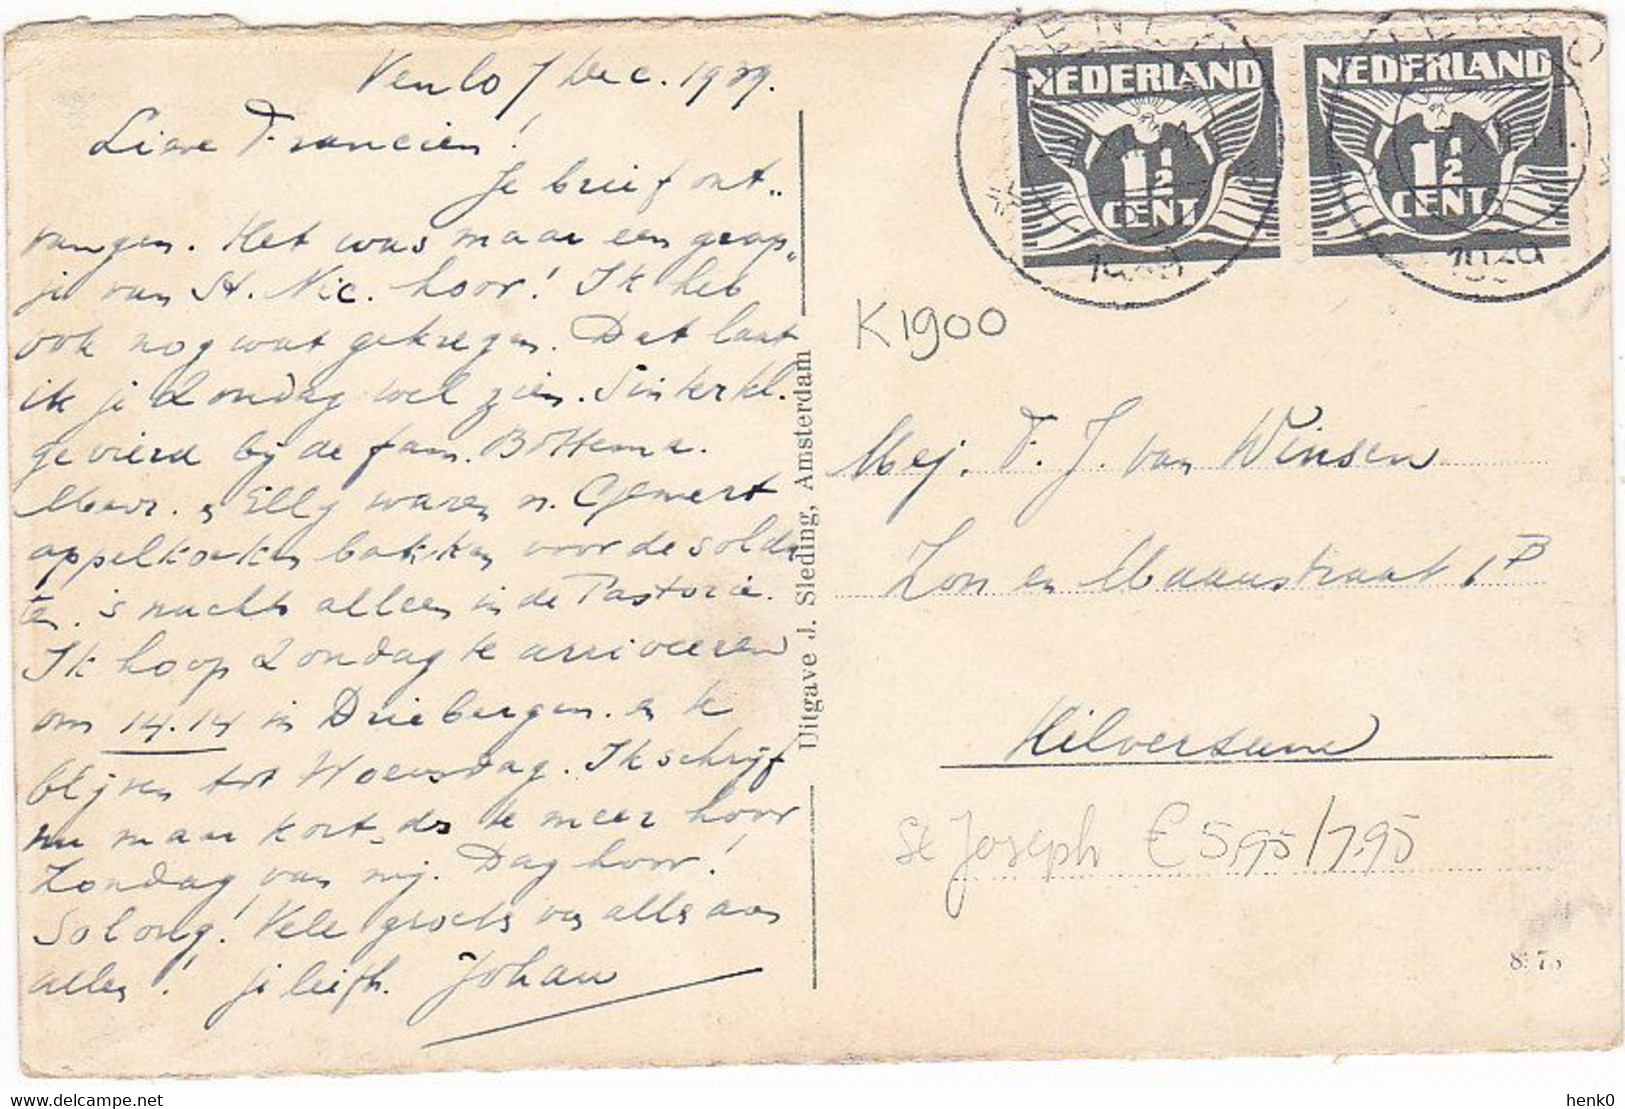 Venlo 7 Dec. 1939.
Lieve Francien!
Je brief ont-
vangen. Het was maar een grap-
je van St. Nic. hoor! Ik heb
ook nog wat gekregen. Dat laat
ik je Zondag wel zien. Sinterkl.
gevierd bij de fam. Bottema.
Mevr. en Elly waren n. Gemert
appelkoeken bakken voor de solda
ten. 's nachts alleen in de Pastorie.
Ik hoop Zondag te arriveeren
om 14.14 in Driebergen. en te
blijven tot Woensdag. Ik schrijf
nu maar kort, de meer hoor
Zondag van mij. Dag hoor!
So long! Vele groets van alls aan
allen! je liefh. Johan
Uitgave J. Sleding, Amsterdam
NEDERLAND
1½
CENT
NEDERLAND
1½
CENT
VENLO
1939
VENLO
1939
K1900
Mej. F. J. van Winsen
Zon en Maanstraat 1B
Hilversum
St Joseph € 5,95/7.95
henk0